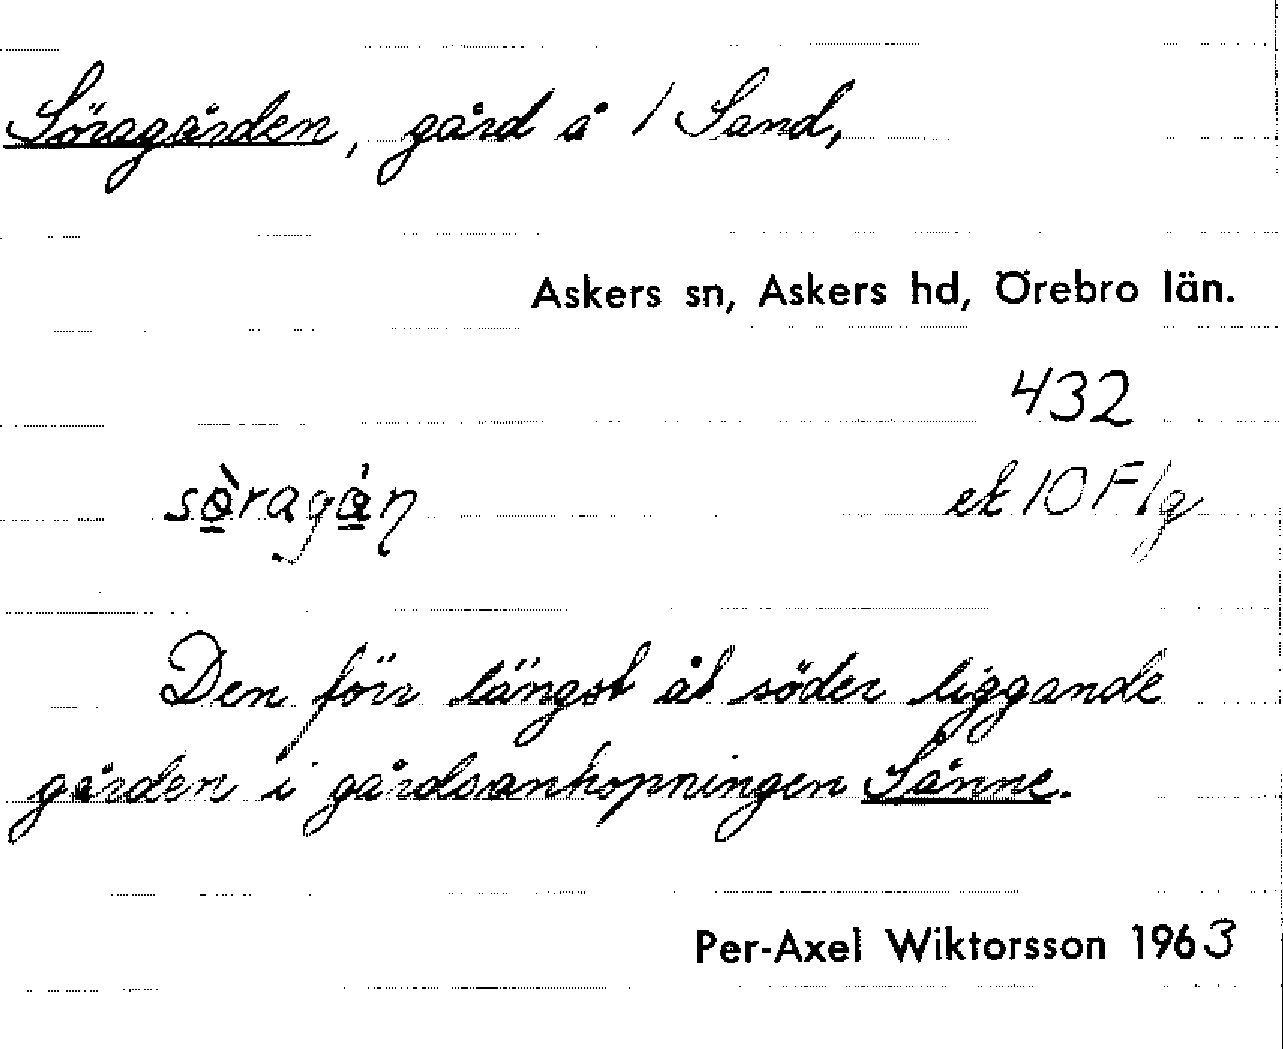 Söragården, gård å 1 Sand,
Askers sn, Askers hd, Örebro län.
432
sə̀ragə́ņ ek 10 F 1g
Den förr längst åt söder liggande
gården i gårdsanhopningen Sånne.
Per-Axel Wiktorsson 1963